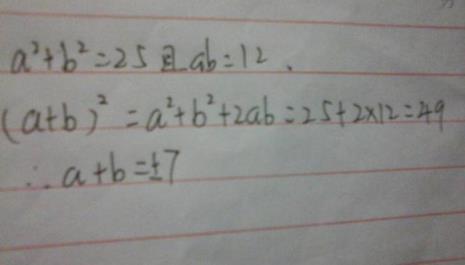 a²+b²=25且ab=12.
(a+b)²=a²+b²+2ab=25+2×12=49
∴a+b=±7